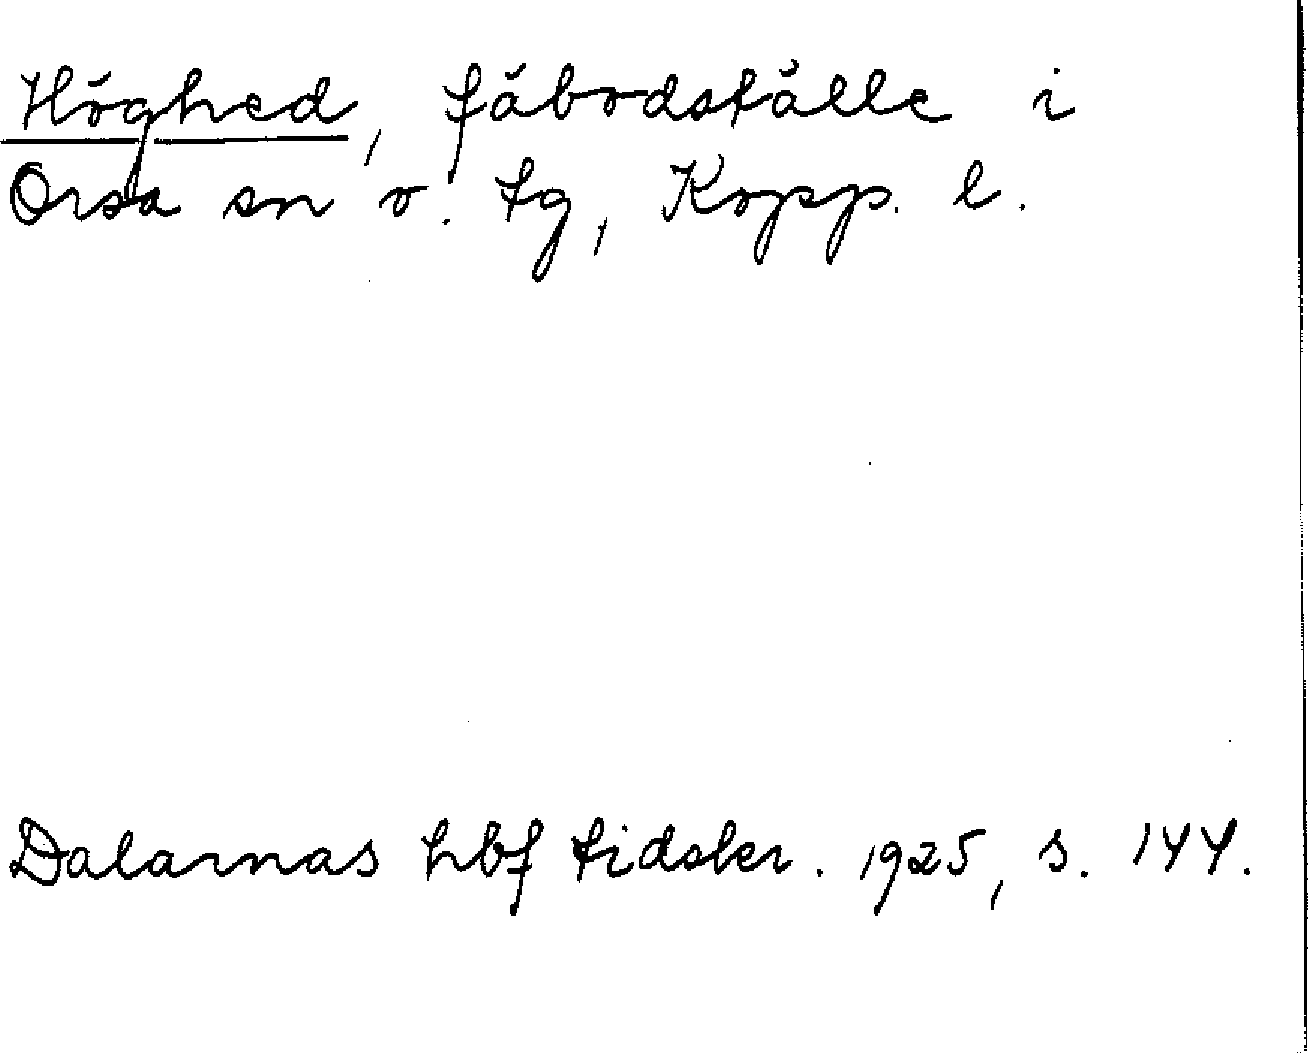 Höghed, fäbodställe i
Orsa sn o. tg, Kopp. l.
Dalarnas hbf tidskr. 1925, s. 144.